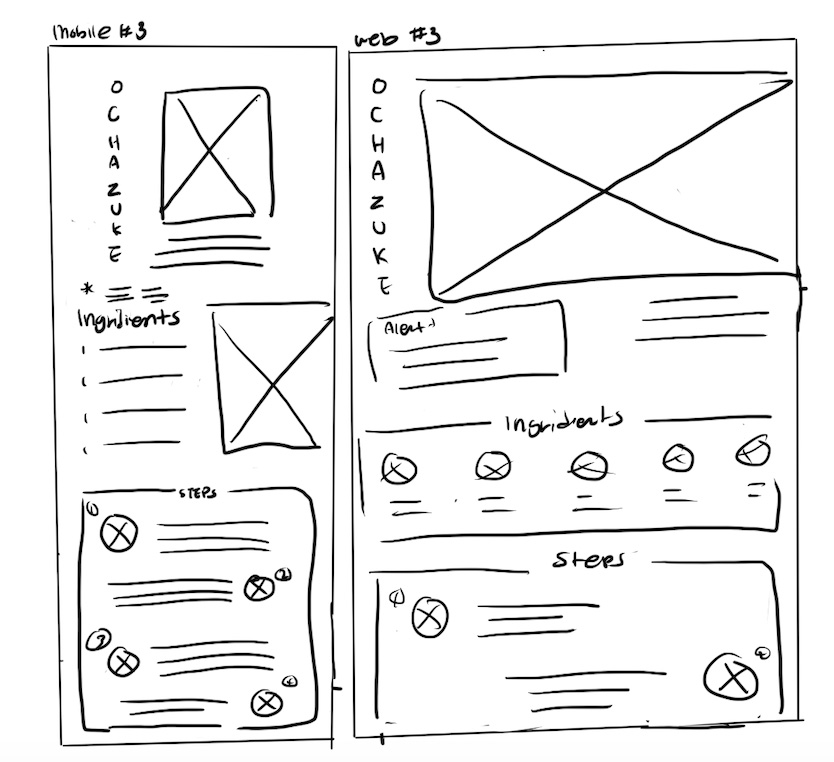 Mobile #3
OCHAZUKE
*
Ingridients
STEPS
1
2
3
4
web #3
OCHAZUKE
Alert
Ingridients
Steps
1
2